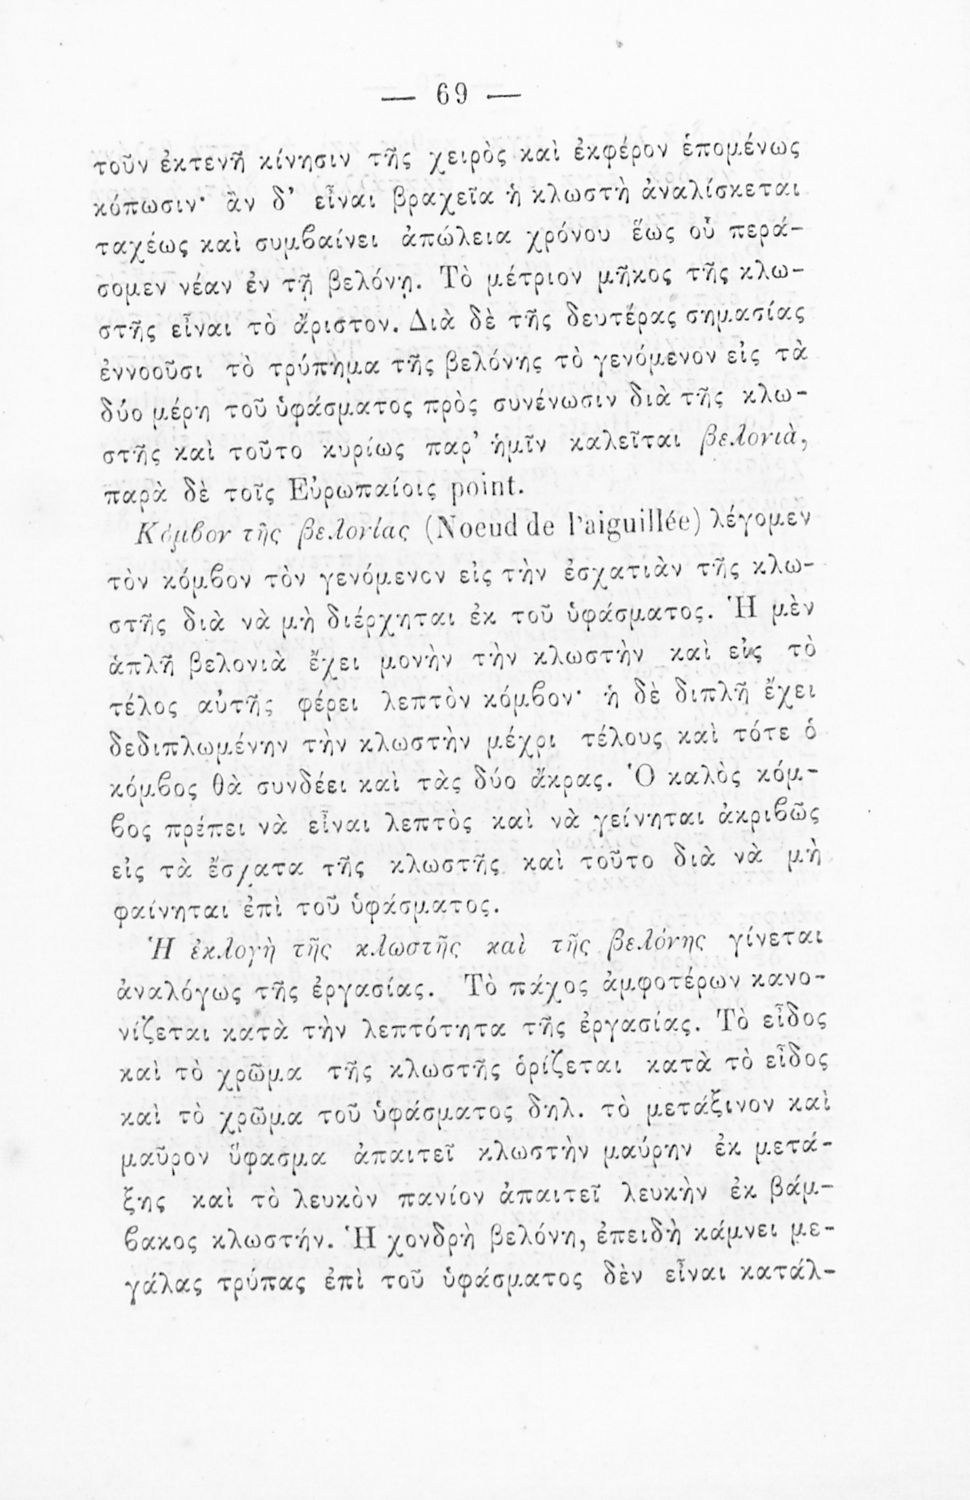 — 69 —
τοῦν ἐκτενῆ κίνησιν τῆς χειρὸς καὶ ἐκφέρον ἑπομένως
κόπωσιν· ἂν δ’ εἶναι βραχεῖα ἡ κλωστὴ ἀναλίσκεται
ταχέως καὶ συμβαίνει ἀπώλεια χρόνου ἕως οὗ περά-
σομεν νέαν ἐν τῇ βελόνῃ. Τὸ μέτριον μῆκος τῆς κλω-
στῆς εἶναι τὸ ἄριστον. Διὰ δὲ τῆς δευτέρας σημασίας
ἐννοοῦσι τὸ τρύπημα τῆς βελόνης τὸ γενόμενον εἰς τὰ
δύο μέρη τοῦ ὑφάσματος πρὸς συνένωσιν διὰ τῆς κλω-
στῆς καὶ τοῦτο κυρίως παρ’ ἡμῖν καλεῖται βελονιὰ,
παρὰ δὲ τοῖς Εὐρωπαίοις point.
Κόμβον τῆς βελονίας (Noeud de l'aiguillée) λέγομεν
τὸν κόμβον τὸν γενόμενον εἰς τὴν ἐσχατιὰν τῆς κλω-
στῆς διὰ νὰ μὴ διέρχηται ἐκ τοῦ ὑφάσματος. Ἡ μὲν
ἁπλῆ βελονιὰ ἔχει μονὴν τὴν κλωστὴν καὶ εἰς τὸ
τέλος αὐτῆς φέρει λεπτὸν κόμβον· ἡ δὲ διπλῆ ἔχει
δεδιπλωμένην τὴν κλωστὴν μέχρι τέλους καὶ τότε ὁ
κόμβος θὰ συνδέει καὶ τὰς δύο ἄκρας. Ὁ καλὸς κόμ-
βος πρέπει νὰ εἶναι λεπτὸς καὶ νὰ γείνηται ἀκριβῶς
εἰς τὰ ἔσχατα τῆς κλωστῆς καὶ τοῦτο διὰ νὰ μὴ
φαίνηται ἐπὶ τοῦ ὑφάσματος.
Ἡ ἐκλογὴ τῆς κλωστῆς καὶ τῆς βελόνης γίνεται
ἀναλόγως τῆς ἐργασίας. Τὸ πάχος ἀμφοτέρων κανο-
νίζεται κατὰ τὴν λεπτότητα τῆς ἐργασίας. Τὸ εἶδος
καὶ τὸ χρῶμα τῆς κλωστῆς ὁρίζεται κατὰ τὸ εἶδος
καὶ τὸ χρῶμα τοῦ ὑφάσματος δηλ. τὸ μετάξινον καὶ
μαῦρον ὕφασμα ἀπαιτεῖ κλωστὴν μαύρην ἐκ μετά-
ξης καὶ τὸ λευκὸν πανίον ἀπαιτεῖ λευκὴν ἐκ βάμ-
βακος κλωστήν. Ἡ χονδρὴ βελόνη, ἐπειδὴ κάμνει με-
γάλας τρύπας ἐπὶ τοῦ ὑφάσματος δὲν εἶναι κατάλ-